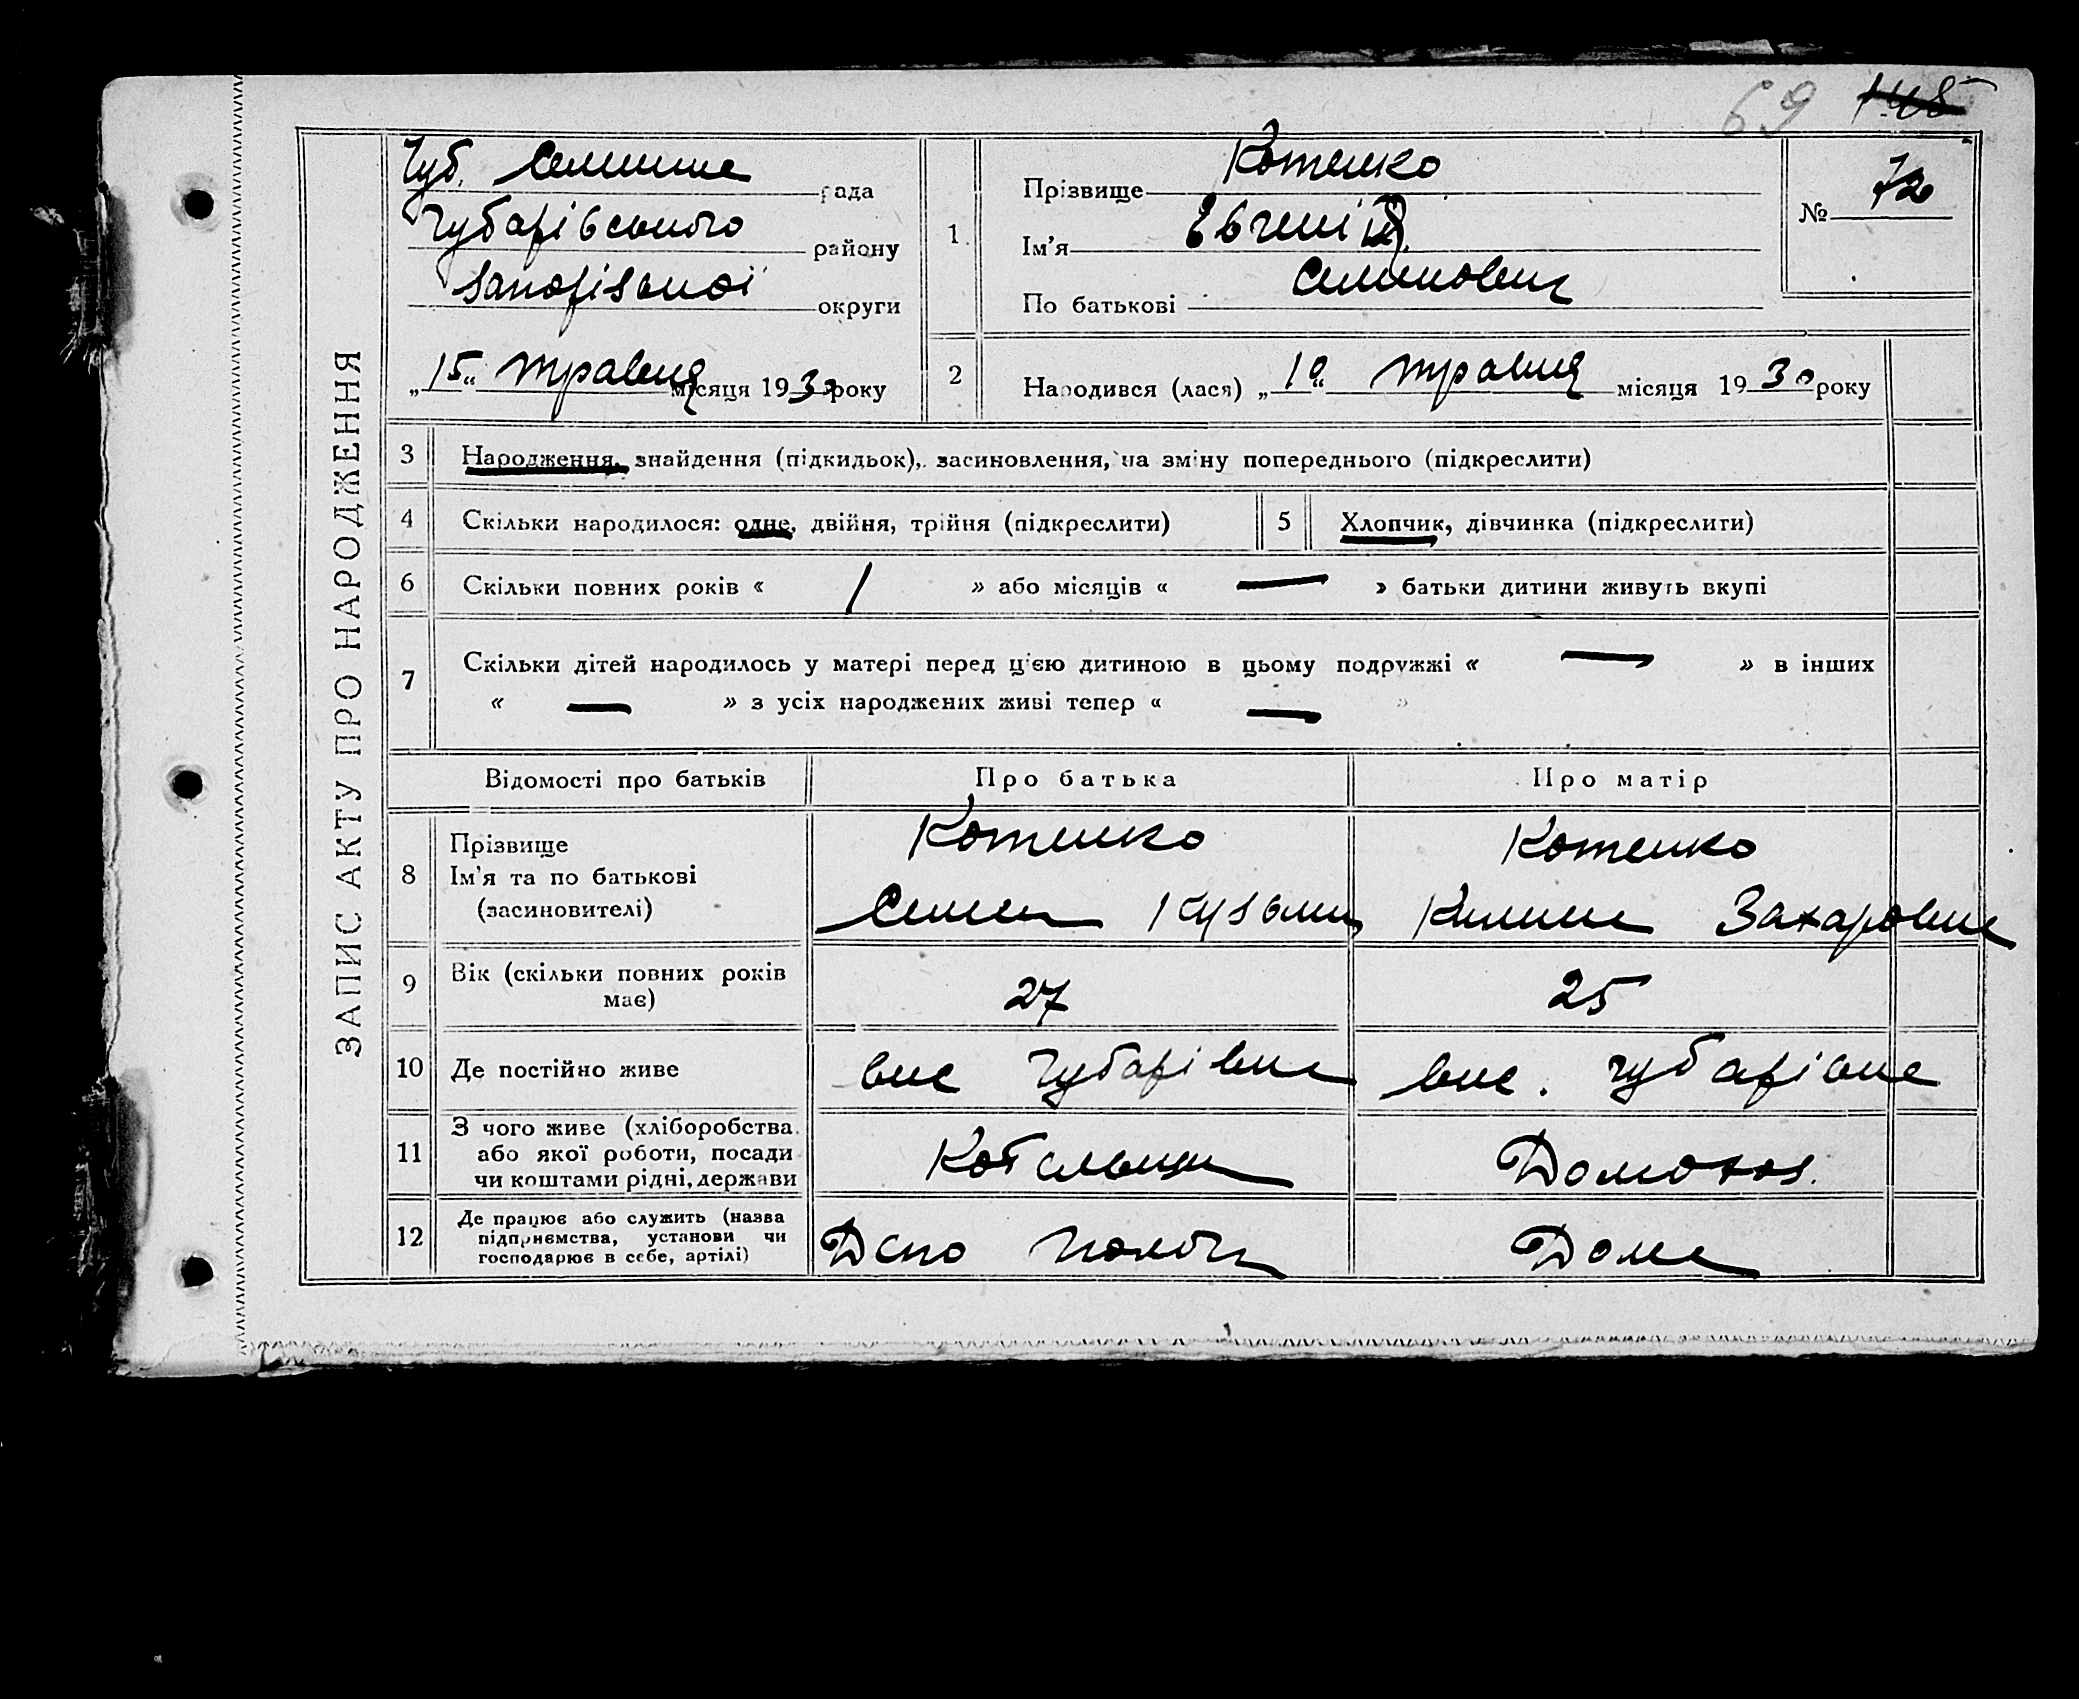 69 148
ЗАПИС АКТУ ПРО НАРОДЖЕННЯ
Чуб. Селищне рада
Чубарівського району
Запорізької округи
„15“ травня місяця 1930 року
1. Прізвище Котенко
Ім'я Євгеній
По батькові Семенович
№ 72
2 Народився (лася) „10“ травня місяця 1930 року
3 Народження, знайдення (підкидьок), засиновлення, на зміну попереднього (підкреслити)
4 Скільки народилося: одне, двійня, трійня (підкреслити) 5 Хлопчик, дівчинка (підкреслити)
6 Скільки повних років « 1 » або місяців « — » батьки дитини живуть вкупі
7 Скільки дітей народилось у матері перед ц'єю дитиною в цьому подружжі « — » в інших
« — » з усіх народжених живі тепер « — »
Відомості про батьків Про батька Про матір
8 Прізвище
Ім'я та по батькові
(засиновителі)
Котенко
Семен Кузьми
Котенко
Килина Захаровна
9 Вік (скільки повних років
має)
27 25
10 Де постійно живе
вис Чубарівка вис. Чубарівка
11 З чого живе (хліборобства
або якої роботи, посади
чи коштами рідні, держави
Котельщик Домохоз.
12 Де працює або служить (назва
підприємства, установи чи
господарює в себе, артілі)
Депо Пологи Дома